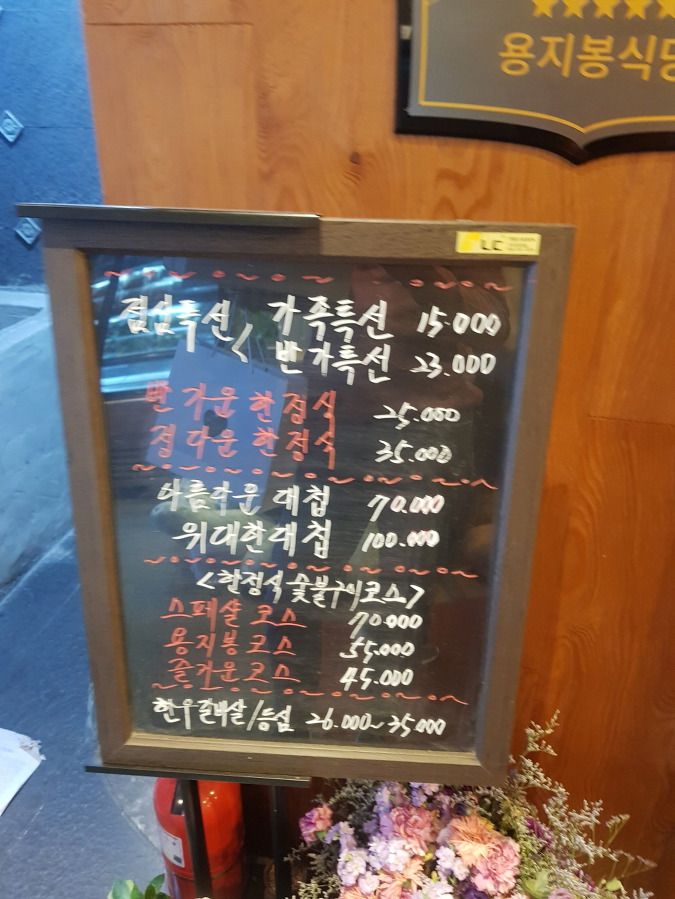 용지봉식당
LC
점심특선 < 가족특선 15.000
반가특선 23.000
반가운한정식 25.000
정다운한정식 35.000
아름다운대첩 70.000
위대한대첩 100.000
<한정식숯불구이코스>
스페샬코스 70.000
용지봉코스 55.000
즐거운코스 45.000
한우갈비살/등심 26.000~35.000